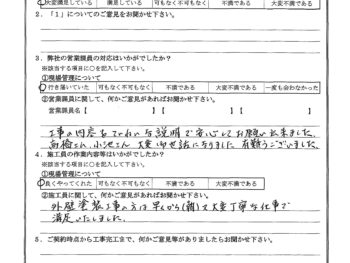 大変満足している 満足している 可もなく不可もなく 不満である 大変不満である
2．「1」についてのご意見をお聞かせ下さい。
3．弊社の営業課員の対応はいかがでしたか？
※該当する項目に○を記入して下さい。
①現場管理について
行き届いていた 可もなく不可もなく 不満である 大変不満である 一度も会わなかった
②営業課員に関して、何かご意見があればお聞かせ下さい。
営業課員名【 】【 】【 】
工事の内容もていねいな説明で安心してお願い出来ました。
高橋さん、小池さん 大変お世話になりました 有難うございました。
4．施工員の作業内容等はいかがでしたか？
※該当する項目に○を記入して下さい。
①現場管理について
良くやってくれた 可もなく不可もなく 不満である 大変不満である
②施工員に関して、何かご意見がありましたらお聞かせ下さい。
外壁塗装工事の方は早くから 大変丁寧な仕事で
満足いたしました。
5．ご契約時点から工事完工まで、何かご意見等がありましたらお聞かせ下さい。